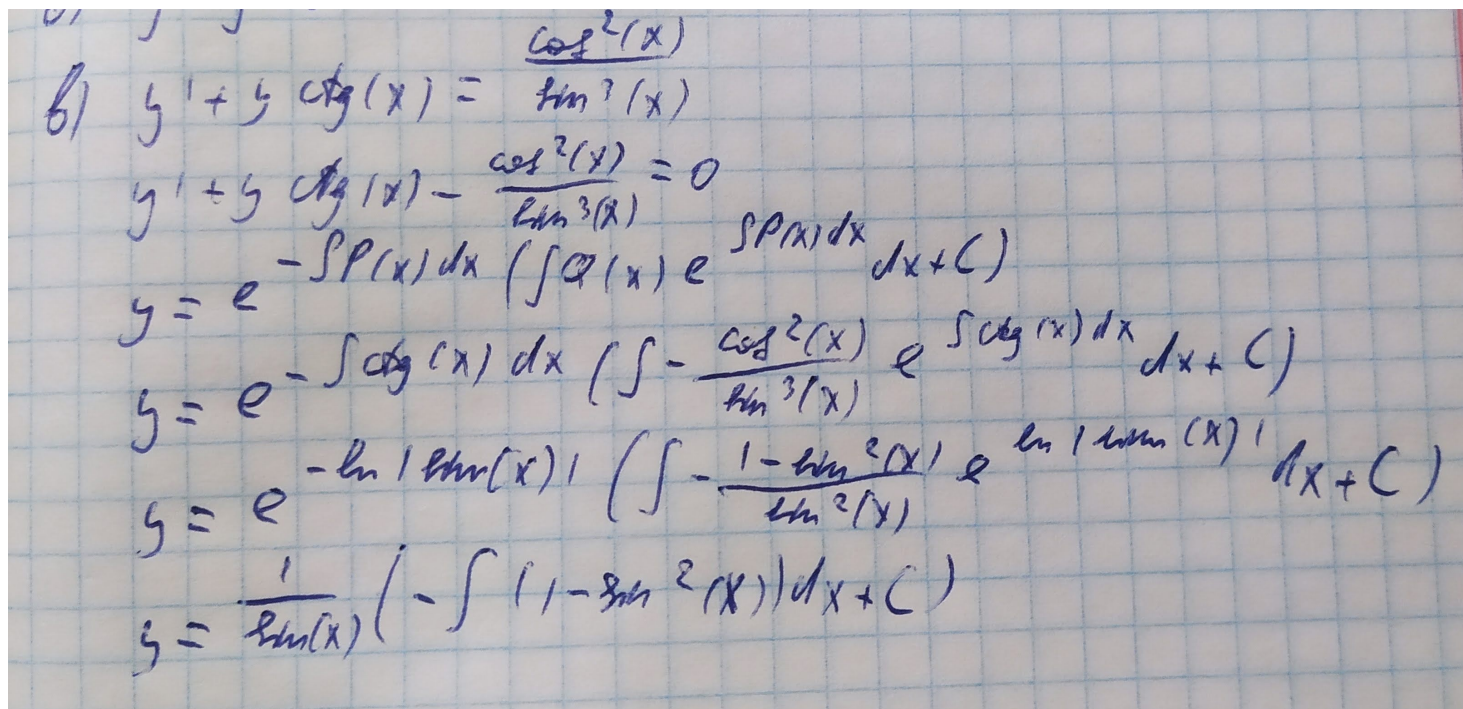 в) y' + y ctg(x) = cos²(x) / sin³(x)
y' + y ctg(x) - cos²(x) / sin³(x) = 0
y = e^(-∫P(x)dx) (∫Q(x) e^(∫P(x)dx) dx + C)
y = e^(-∫ctg(x)dx) (∫ - cos²(x) / sin³(x) e^(∫ctg(x)dx) dx + C)
y = e^(-ln|sin(x)|) (∫ - (1-sin²(x)) / sin²(x) e^(ln|sin(x)|) dx + C)
y = 1 / sin(x) (-∫(1-sin²(x))dx + C)